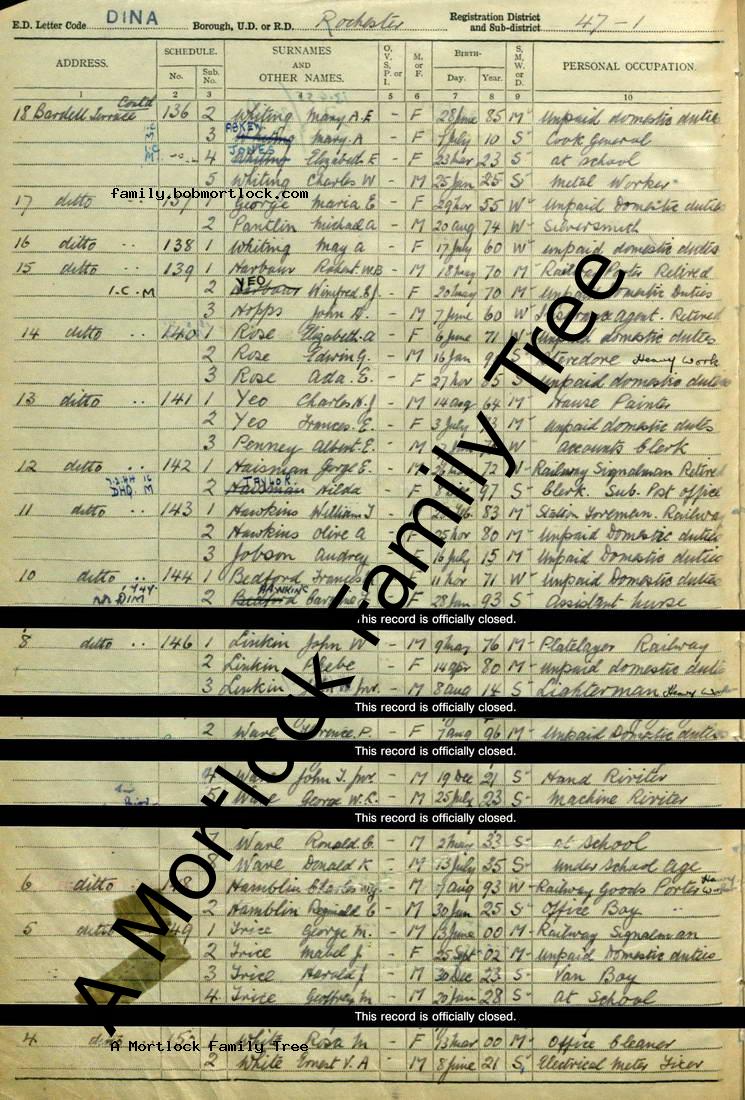 E.D. Letter Code DINA Borough, U.D. or R.D. Rochester Registration District and Sub-district 47-1
ADDRESS. SCHEDULE. No. Sub. No. SURNAMES AND OTHER NAMES. O, V, S, P, or I. M. or F. BIRTH— Day. Year. S, M, W, or D. PERSONAL OCCUPATION.
1 2 3 4 5 6 7 8 9 10
Contd
18 Bardell Terrace 136 2 Whiting Mary A. E - F 28 June 85 M Unpaid domestic duties
ABKEY
3 Whiting Mary A - F 1 July 10 S Cook General
JONES
4 Whiting Elizabeth E - F 23 Mar 23 S at school
5 Whiting Charles W - M 25 Jan 25 S Metal Worker
family.bobmortlock.com
17 ditto 137 1 George Maria E - F 29 Nov 55 W Unpaid Domestic duties
2 Pantlin Michael A - M 20 Aug 74 W Silversmith
16 ditto 138 1 Whiting May A - F 17 July 60 W unpaid domestic duties
15 ditto 139 1 Harbour Robert. W.B - M 18 May 70 M Railway Porter Retired
YEO
I.C.M 2 Harbour Winifred E.J. - F 20 May 70 M Unpaid Domestic Duties
3 Hopps John - M 7 June 60 W Insurance agent. Retired
14 ditto 140 1 Rose Elizabeth. A - F 6 June 71 W Unpaid domestic duties
2 Rose Edwin G. - M 16 Jan S Stevedore Heavy Work
3 Rose Ada. E. - F 27 Nov 85 S unpaid domestic duties
13 ditto 141 1 Yeo Charles H. J - M 14 Aug 64 M House Painter
2 Yeo Frances. E - F 3 July M unpaid domestic duties
3 Penney Albert. E. - M W accounts Clerk
12 ditto 142 1 Haisman George E. - M 72 W Railway Signalman Retired
TAYLOR.
2 Haisman Hilda - F 97 S Clerk. Sub. Post office
11 ditto 143 1 Hawkins William J - 83 M Station Foreman. Railway
2 Hawkins Olive A - F 25 Nov 80 M Unpaid Domestic duties
3 Jobson Audrey F 16 July 15 M Unpaid Domestic duties
10 ditto 144 1 Bedford Frances 11 Nov 71 W Unpaid Domestic duties
HAWKINS
2 Bedford F 28 Jan 93 S Assistant nurse
This record is officially closed.
8 ditto 146 1 Linkin John W M 9 May 76 M Platelayer Railway
2 Linkin Phebe - F 14 Apr 80 M unpaid domestic duties
3 Linkin Jnr. - M 8 Aug 14 S Lighterman Heavy Work
This record is officially closed.
2 Ware Florence. P. - F 7 Aug 96 M Unpaid Domestic duties
This record is officially closed.
4 Ware John T. Jnr - M 19 Dec 21 S Hand Riviter
5 Ware George W. R. - M 25 July 23 S Machine Riviter
This record is officially closed.
7 Ware Ronald C. - M 2 May 33 S at School
8 Ware Donald K - M 13 July 35 S under School age
6 ditto 148 1 Hamblin Charles - M 7 Aug 93 W Railway Goods Porter Heavy Work
2 Hamblin Reginald C - M 30 Jan 25 S Office Boy
5 ditto 149 1 Trice George M. - M 13 June 00 M Railway Signalman
2 Trice Mabel J. - F 25 Sept 02 M Unpaid Domestic duties
3 Trice Harold J - M 30 Dec 23 S Van Boy
4 Trice Geoffrey M - M 20 Jan 28 S at School
This record is officially closed.
4 ditto 150 1 White Rosa M - F 13 Mar 00 M Office Cleaner
A Mortlock Family Tree
2 White Ernest V. A - M 8 June 21 S Electrical Meter Fixer
A Mortlock Family Tree